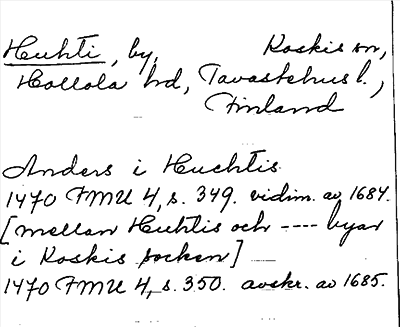 Huhti, by, Koskis sn,
Hollola hd, Tavastehus l.,
Finland
Anders i Huchtis
1470 FMU 4, s. 349. vidim. av 1684.
[mellan Huhtis och ---- byar
i Koskis socken]
1470 FMU 4, s. 350. avskr. av 1685.